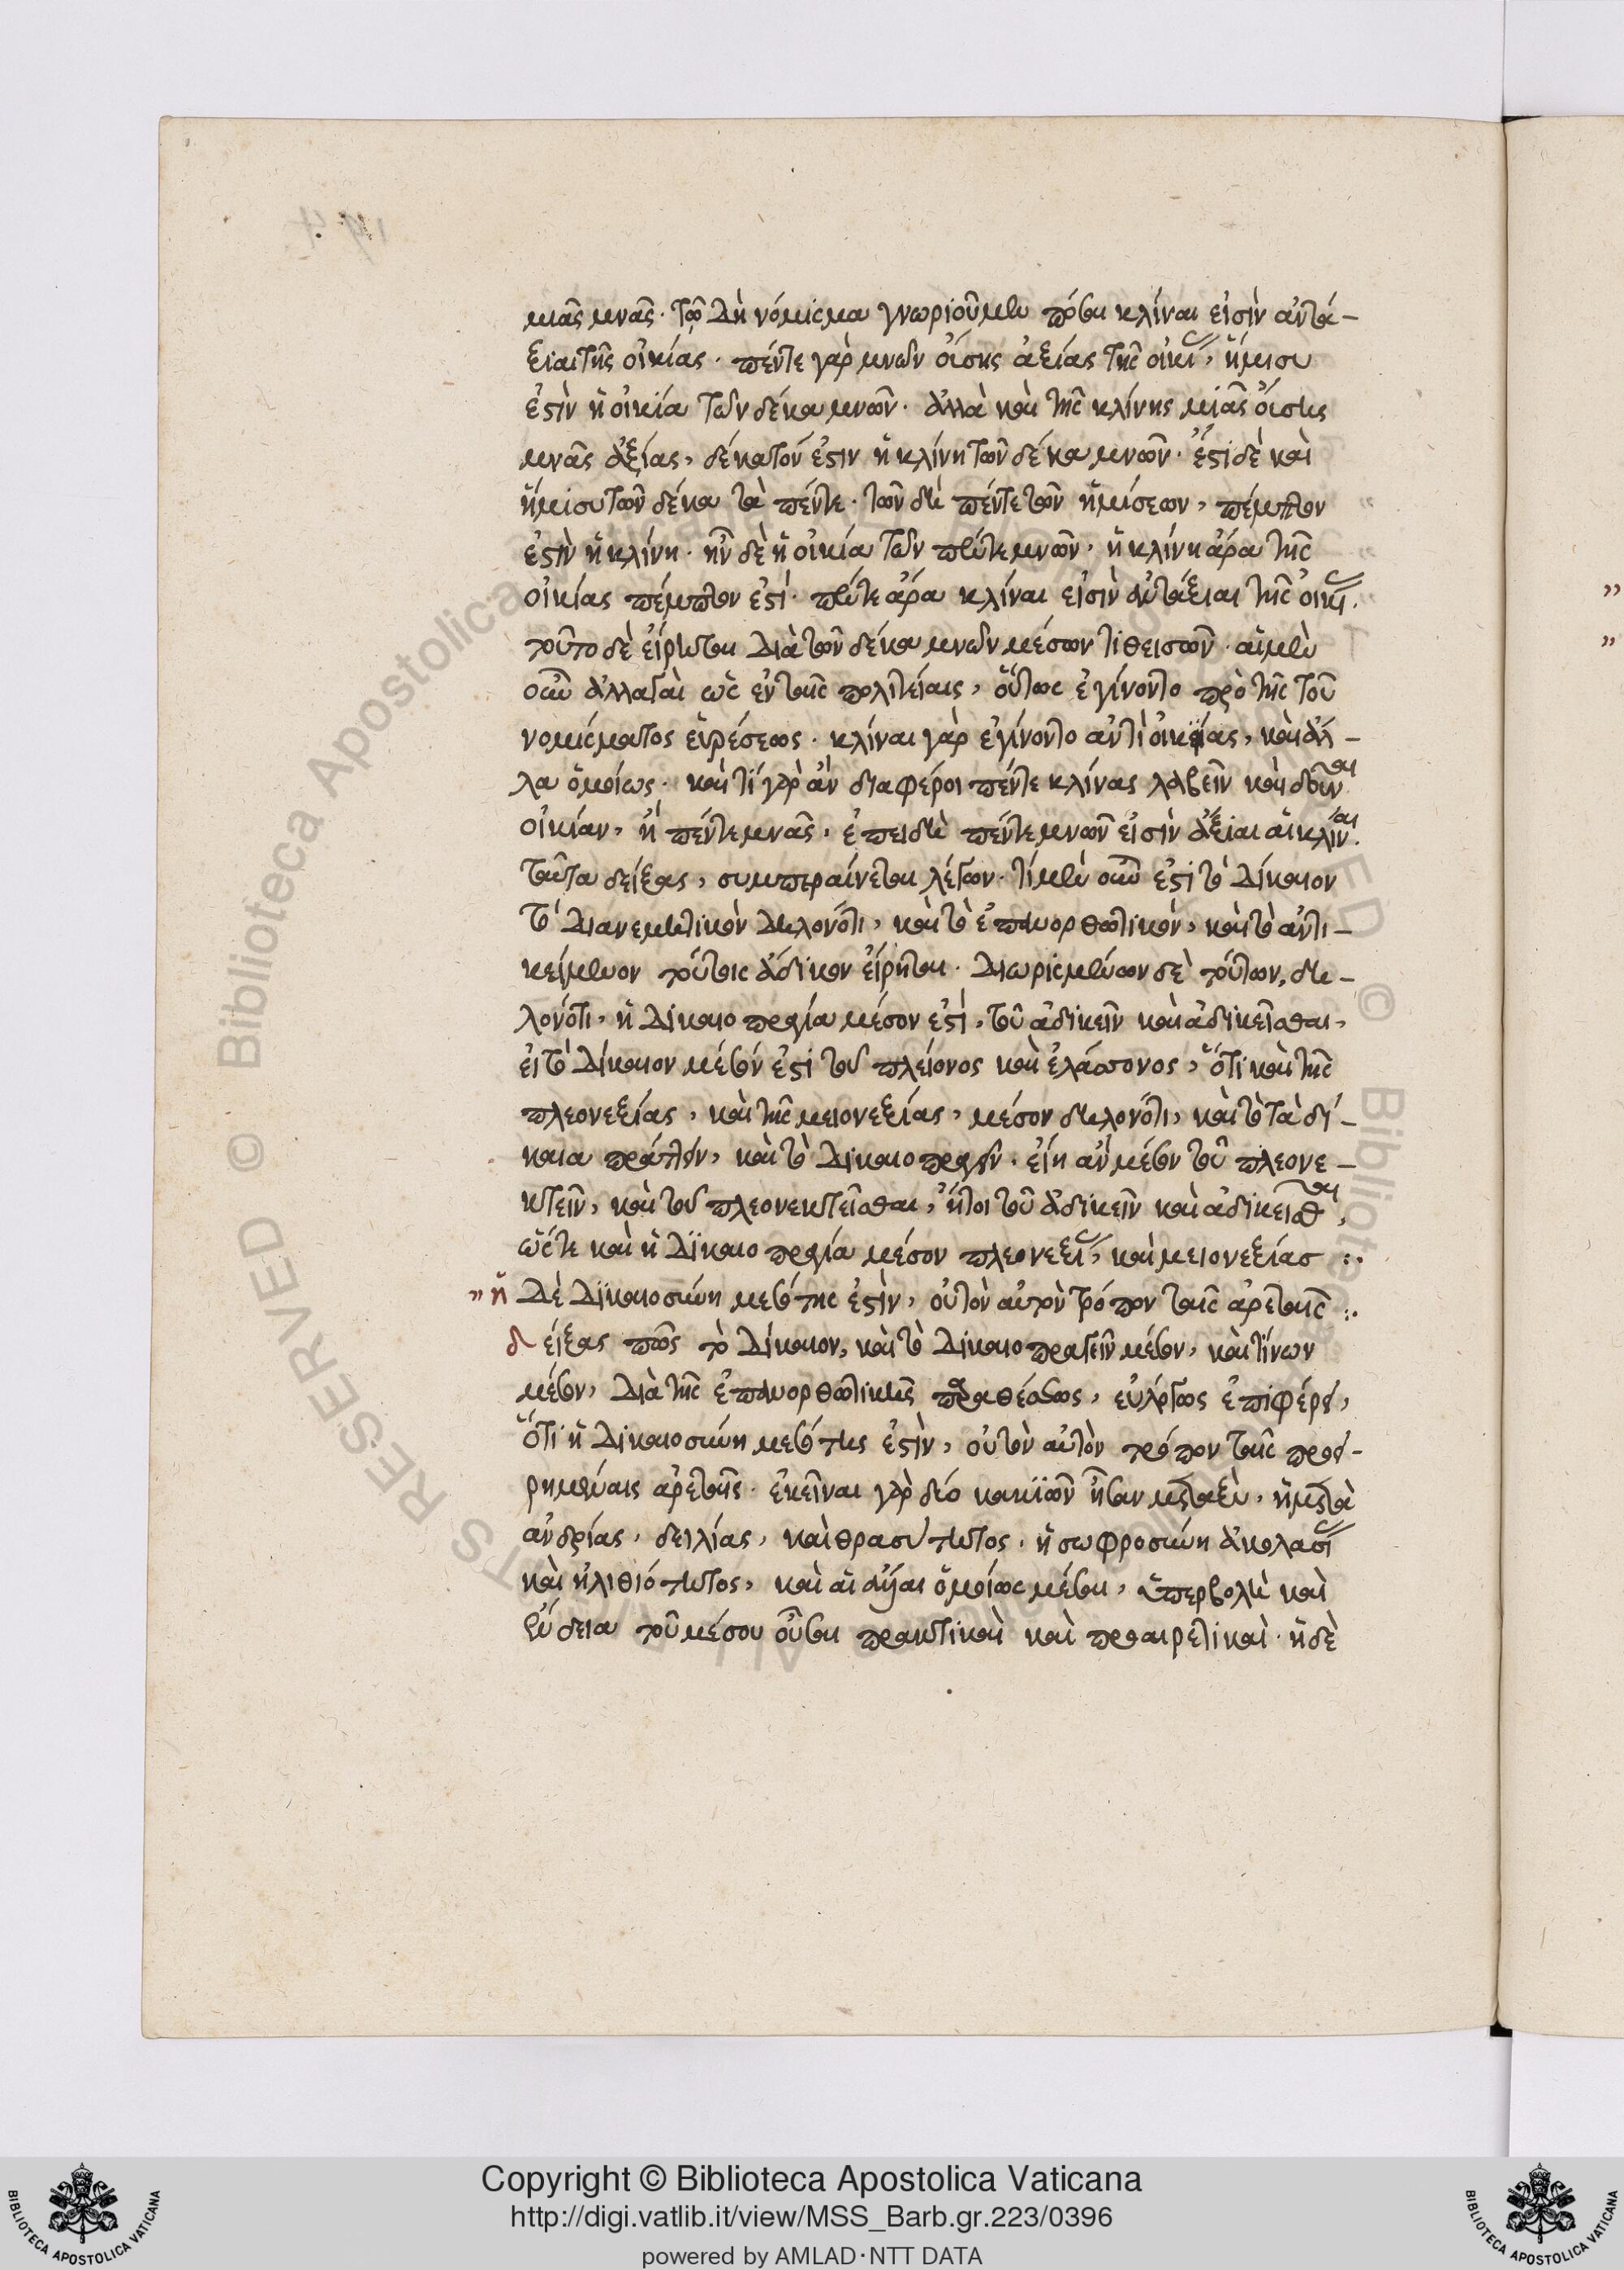 μιᾶς μνᾶς· τῷ δὴ νόμισμα γνωριοῦμεν πόσαι κλίναι εἰσὶν ἀντά-
ξιαι τῆς οἰκίας· πέντε γὰρ μνῶν οὔσης ἀξίας τῆς οἰκί, ἥμισυ
ἐστὶν ἡ οἰκία τῶν δέκα μνῶν· ἀλλὰ καὶ τῆς κλίνης μιᾶς οὔσης
μνᾶς ἀξίας, δέκατόν ἐστιν ἡ κλίνη τῶν δέκα μνῶν· ἔστι δὲ καὶ
ἥμισυ τῶν δέκα τὰ πέντε· τῶν δὴ πέντε τῶν ἡμίσεων, πέμπτον
ἐστὶν ἡ κλίνη· ἦν δὲ ἡ οἰκία τῶν πέντε μνῶν· ἡ κλίνη ἄρα τῆς
οἰκίας πέμπτον ἐστί· πέντε ἄρα κλίναι εἰσὶν ἀντάξιαι τῆς οἰκί.
τοῦτο δὲ εἴρηται διὰ τῶν δέκα μνῶν μέσων τιθεισῶν· αἱ μὲν
οὖν ἀλλαγαὶ ὡς ἐν ταῖς πολιτείαις, οὕτως ἐγίνοντο πρὸ τῆς τοῦ
νομίσματος εὑρέσεως· κλίναι γὰρ ἐγίνοντο ἀντὶ οἰκίας, καὶ ἄλ-
λα ὁμοίως· καὶ τί γὰρ ἂν διαφέροι πέντε κλίνας λαβεῖν καὶ δοῦναι
οἰκίαν, ἢ πέντε μνᾶς, ἐπειδὴ πέντε μνῶν εἰσὶν ἄξιαι αἱ κλίναι.
ταῦτα δείξας, συμπεραίνεται λέγων· τί μὲν οὖν ἐστι τὸ δίκαιον
τὸ διανεμητικὸν δηλονότι, καὶ τὸ ἐπανορθωτικὸν, καὶ τὸ ἀντι-
κείμενον τούτοις ἄδικον εἴρηται· διωρισμένων δὲ τούτων, δη-
λονότι, ἡ δικαιοπραγία μέσον ἐστί, τοῦ ἀδικεῖν καὶ ἀδικεῖσθαι,
εἰ τὸ δίκαιον μέσον ἐστι τοῦ πλείονος καὶ ἐλάσσονος, ὅτι καὶ τῆς
πλεονεξίας, καὶ τῆς μειονεξίας, μέσον δηλονότι, καὶ τὸ τὰ δί-
καια πράττειν, καὶ τὸ δικαιοπραγεῖν· εἴη ἂν μέσον τοῦ πλεονε-
κτεῖν, καὶ τοῦ πλεονεκτεῖσθαι, ἤτοι τοῦ ἀδικεῖν καὶ ἀδικεῖσθαι,
ὥστε καὶ ἡ δικαιοπραγία μέσον πλεονεξί, καὶ μειονεξίας :·
" ἡ δὲ δικαιοσύνη μεσότης ἐστὶν, οὐ τὸν αὐτὸν τρόπον ταῖς ἀρεταῖς :·
δείξας πῶς τὸ δίκαιον, καὶ τὸ δικαιοπραγεῖν μέσον, καὶ τίνων
μέσον, διὰ τῆς ἐπανορθωτικῆς παραθέσεως, εὐλόγως ἐπιφέρει,
ὅτι ἡ δικαιοσύνη μεσότης ἐστὶν, οὐ τὸν αὐτὸν τρόπον ταῖς προει-
ρημέναις ἀρεταῖς· ἐκεῖναι γὰρ δύο κακιῶν ἦσαν μεταξὺ,
ἀνδρίας, δειλίας, καὶ θρασύτητος· ἡ σωφροσύνη ἀκολασί
καὶ ἠλιθιότητος, καὶ αἱ ἄλλαι ὁμοίως μέσαι, ὑπερβολὴ καὶ
ἔνδεια τοῦ μέσου οὖσαι πρακτικαὶ καὶ προαιρετικαί· ἡ δὲ
Copyright © Biblioteca Apostolica Vaticana
http://digi.vatlib.it/view/MSS_Barb.gr.223/0396
powered by AMLAD·NTT DATA
BIBLIOTECA APOSTOLICA VATICANA
BIBLIOTECA APOSTOLICA VATICANA